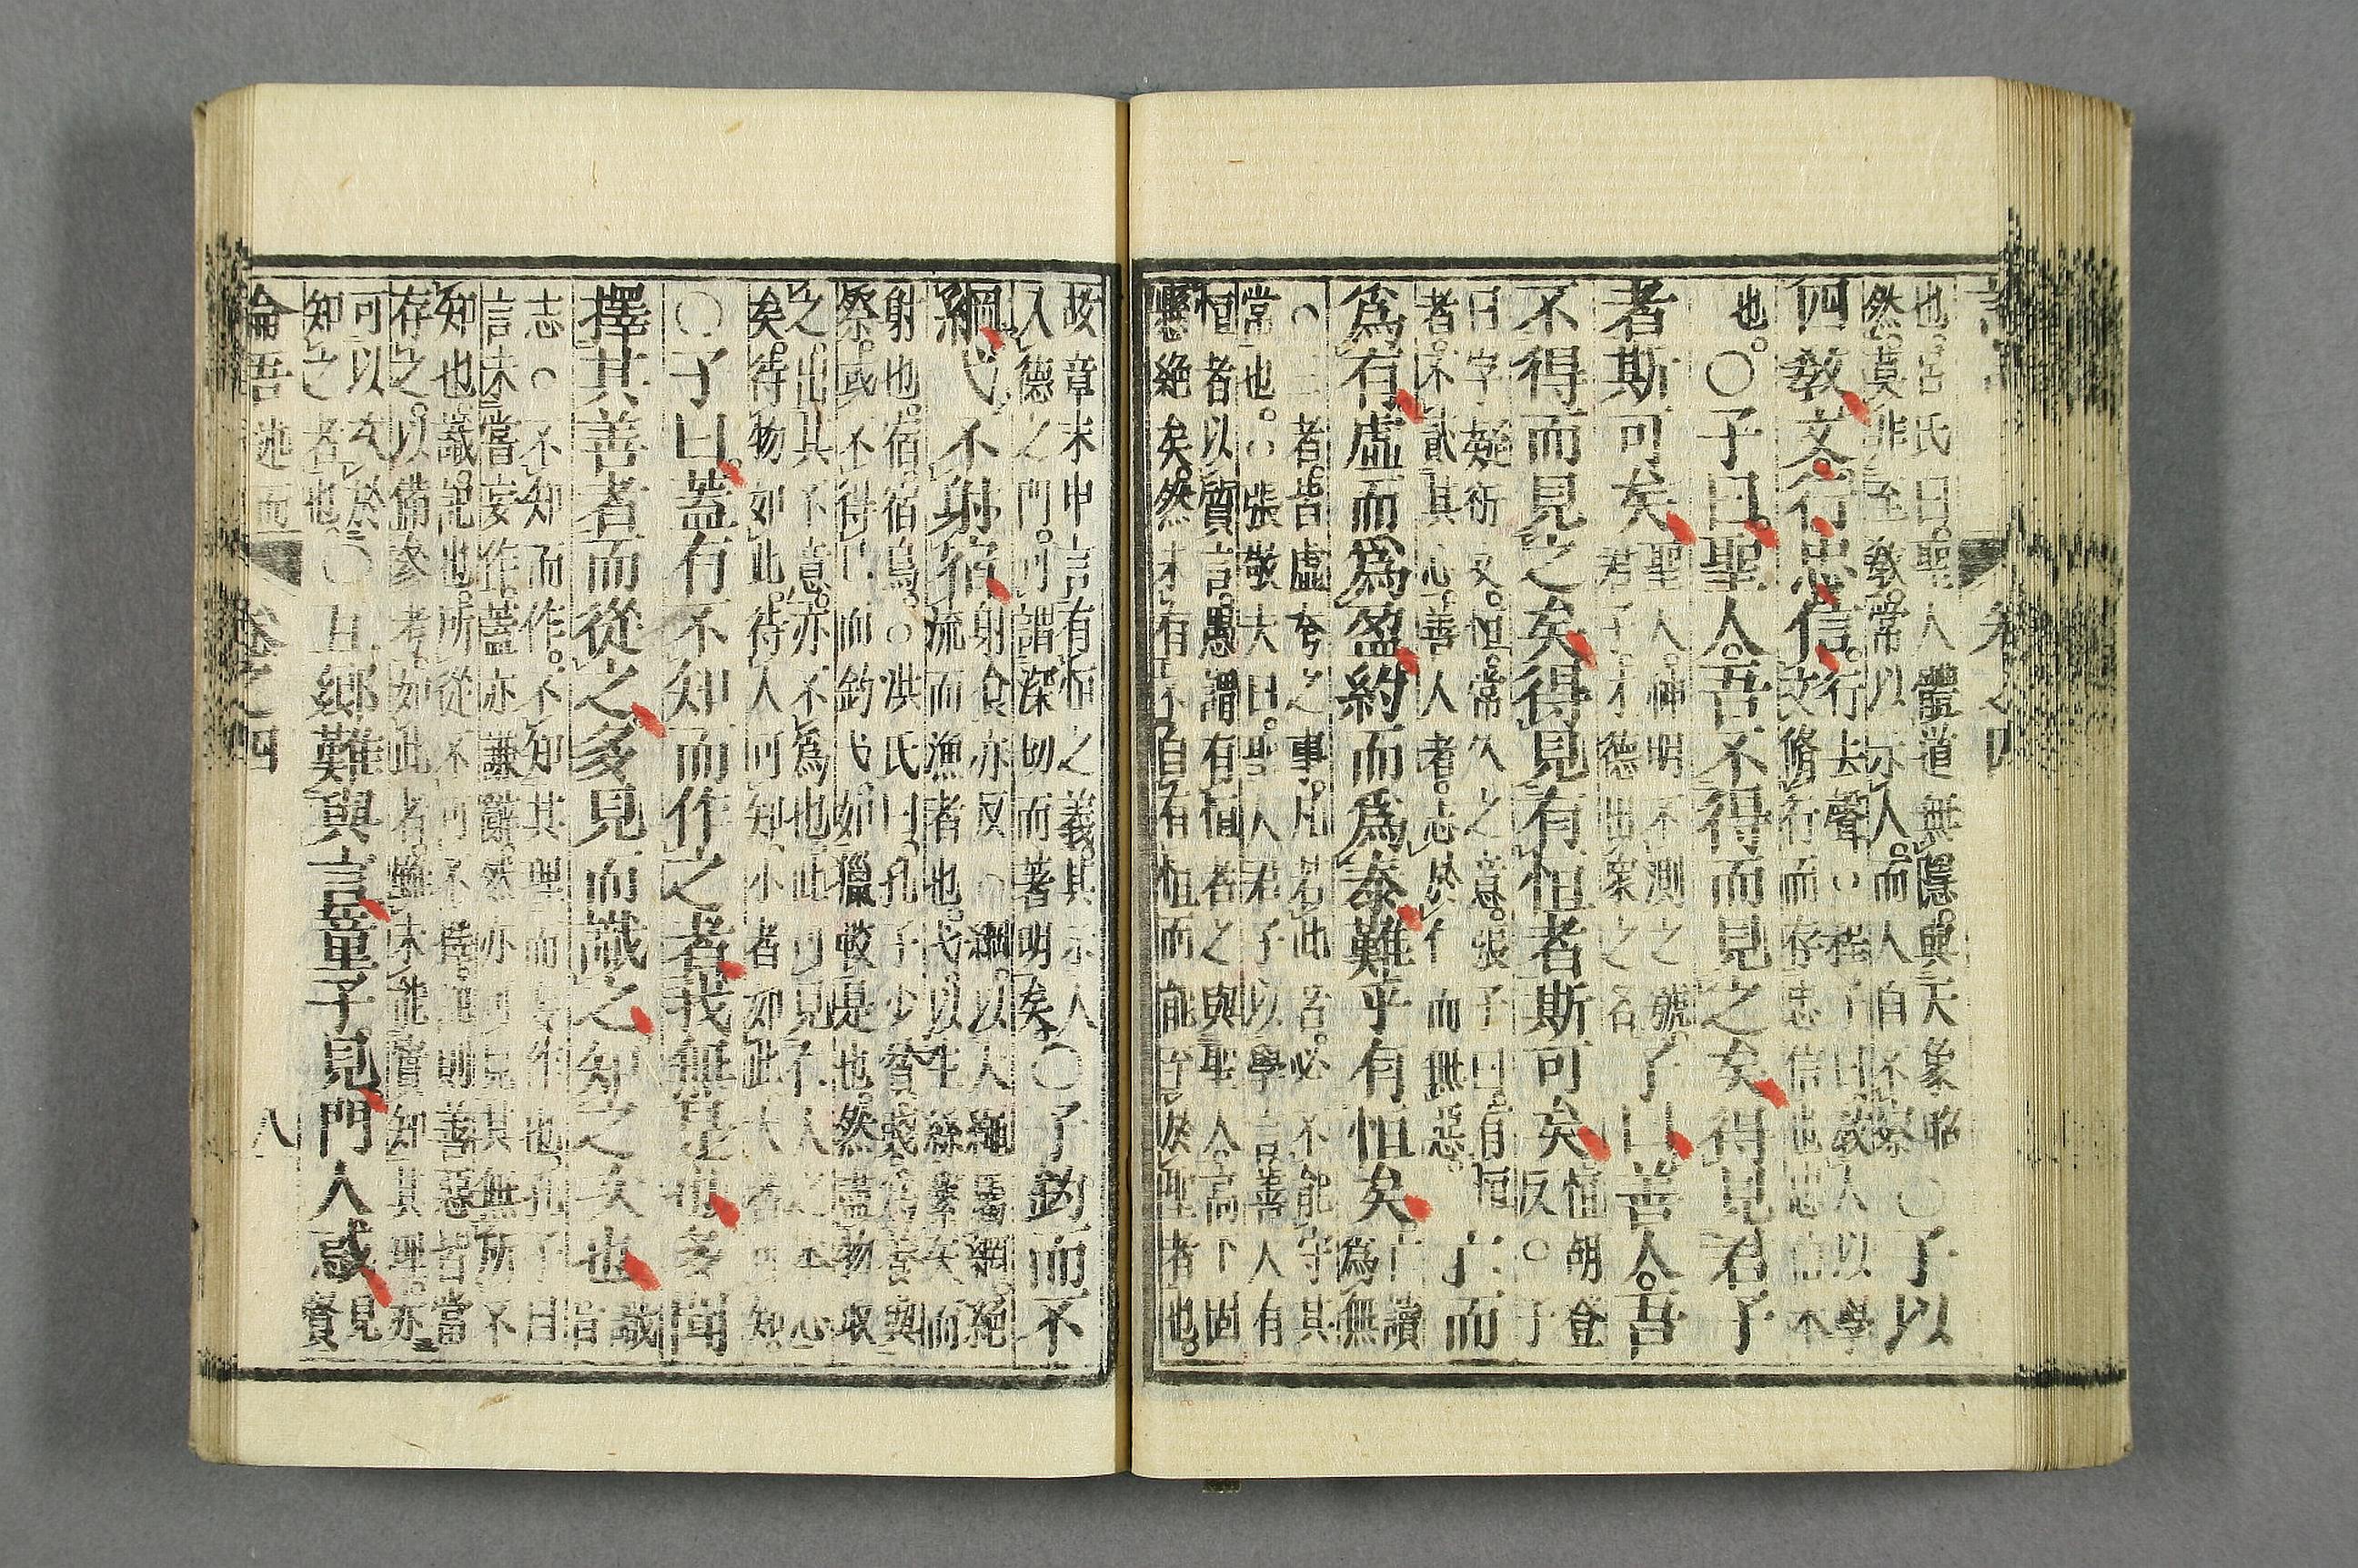 卷之四
也。呂氏曰。聖人體道無隱。與天象昭
然。莫非至教。常以示人。而人自不察 ○子以
四教文行忠信。行去聲。○程子曰教人以學
文脩行而存忠信也忠信本
也。○子曰。聖人。吾不得而見之矣得見君子
者斯可矣 聖人。神明不測之號
君子。才德出衆之名 子曰善人。吾
不得而見之矣得見有恒者斯可矣 恒胡登
反。○子
曰字疑衍文。恒。常久之意。張子曰。有恒
者。不貳其心。善人者。志於仁而無惡。 亡而
爲有虛而爲盈約而爲泰難乎有恒矣 亡讀
爲無
○三者。皆虛夸之事。凡若此者。必不能守其
常也。○張敬夫曰。聖人君子以學言善人有
恒者以質言。愚謂有恒者之與聖人。高下固
懸絶矣。然未有不自有恒而能至於聖者也。
故章末申言有恒之義。其示人
入德之門。可謂深切而著明矣。○子釣而不
綱弋不射宿 射食亦反 ○綱。以大繩屬網。絕
流而漁者也。弋。以生絲繫矢而
射也。宿。宿鳥。○洪氏曰。孔子少貧賤。爲養與
祭。或不得已而釣弋。如獵較是也。然盡物取
之。出其不意。亦不爲也此可見仁人之本心
矣。待物如此。待人可知。小者如此大者可知。
○子曰。蓋有不知而作之者我無是也多聞
擇其善者而從之多見而識之知之次也 識
音
志。○不知而作。不知其理而妄作也。孔子自
言未嘗妄作。蓋亦謙辭。然亦可見其無所不
知也。識。記也。所從不可不擇。記則善惡皆當
存之。以備參考。如此者。雖未能實知其理。亦
可以次於
知之者也○互鄉難與言童子見門人惑 見
賢
論吾 述而 卷之四 八